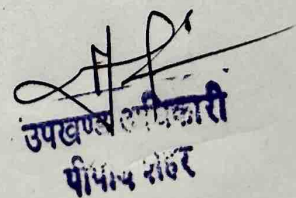 उपखण्ड अधिकारी
पीपाड शहर